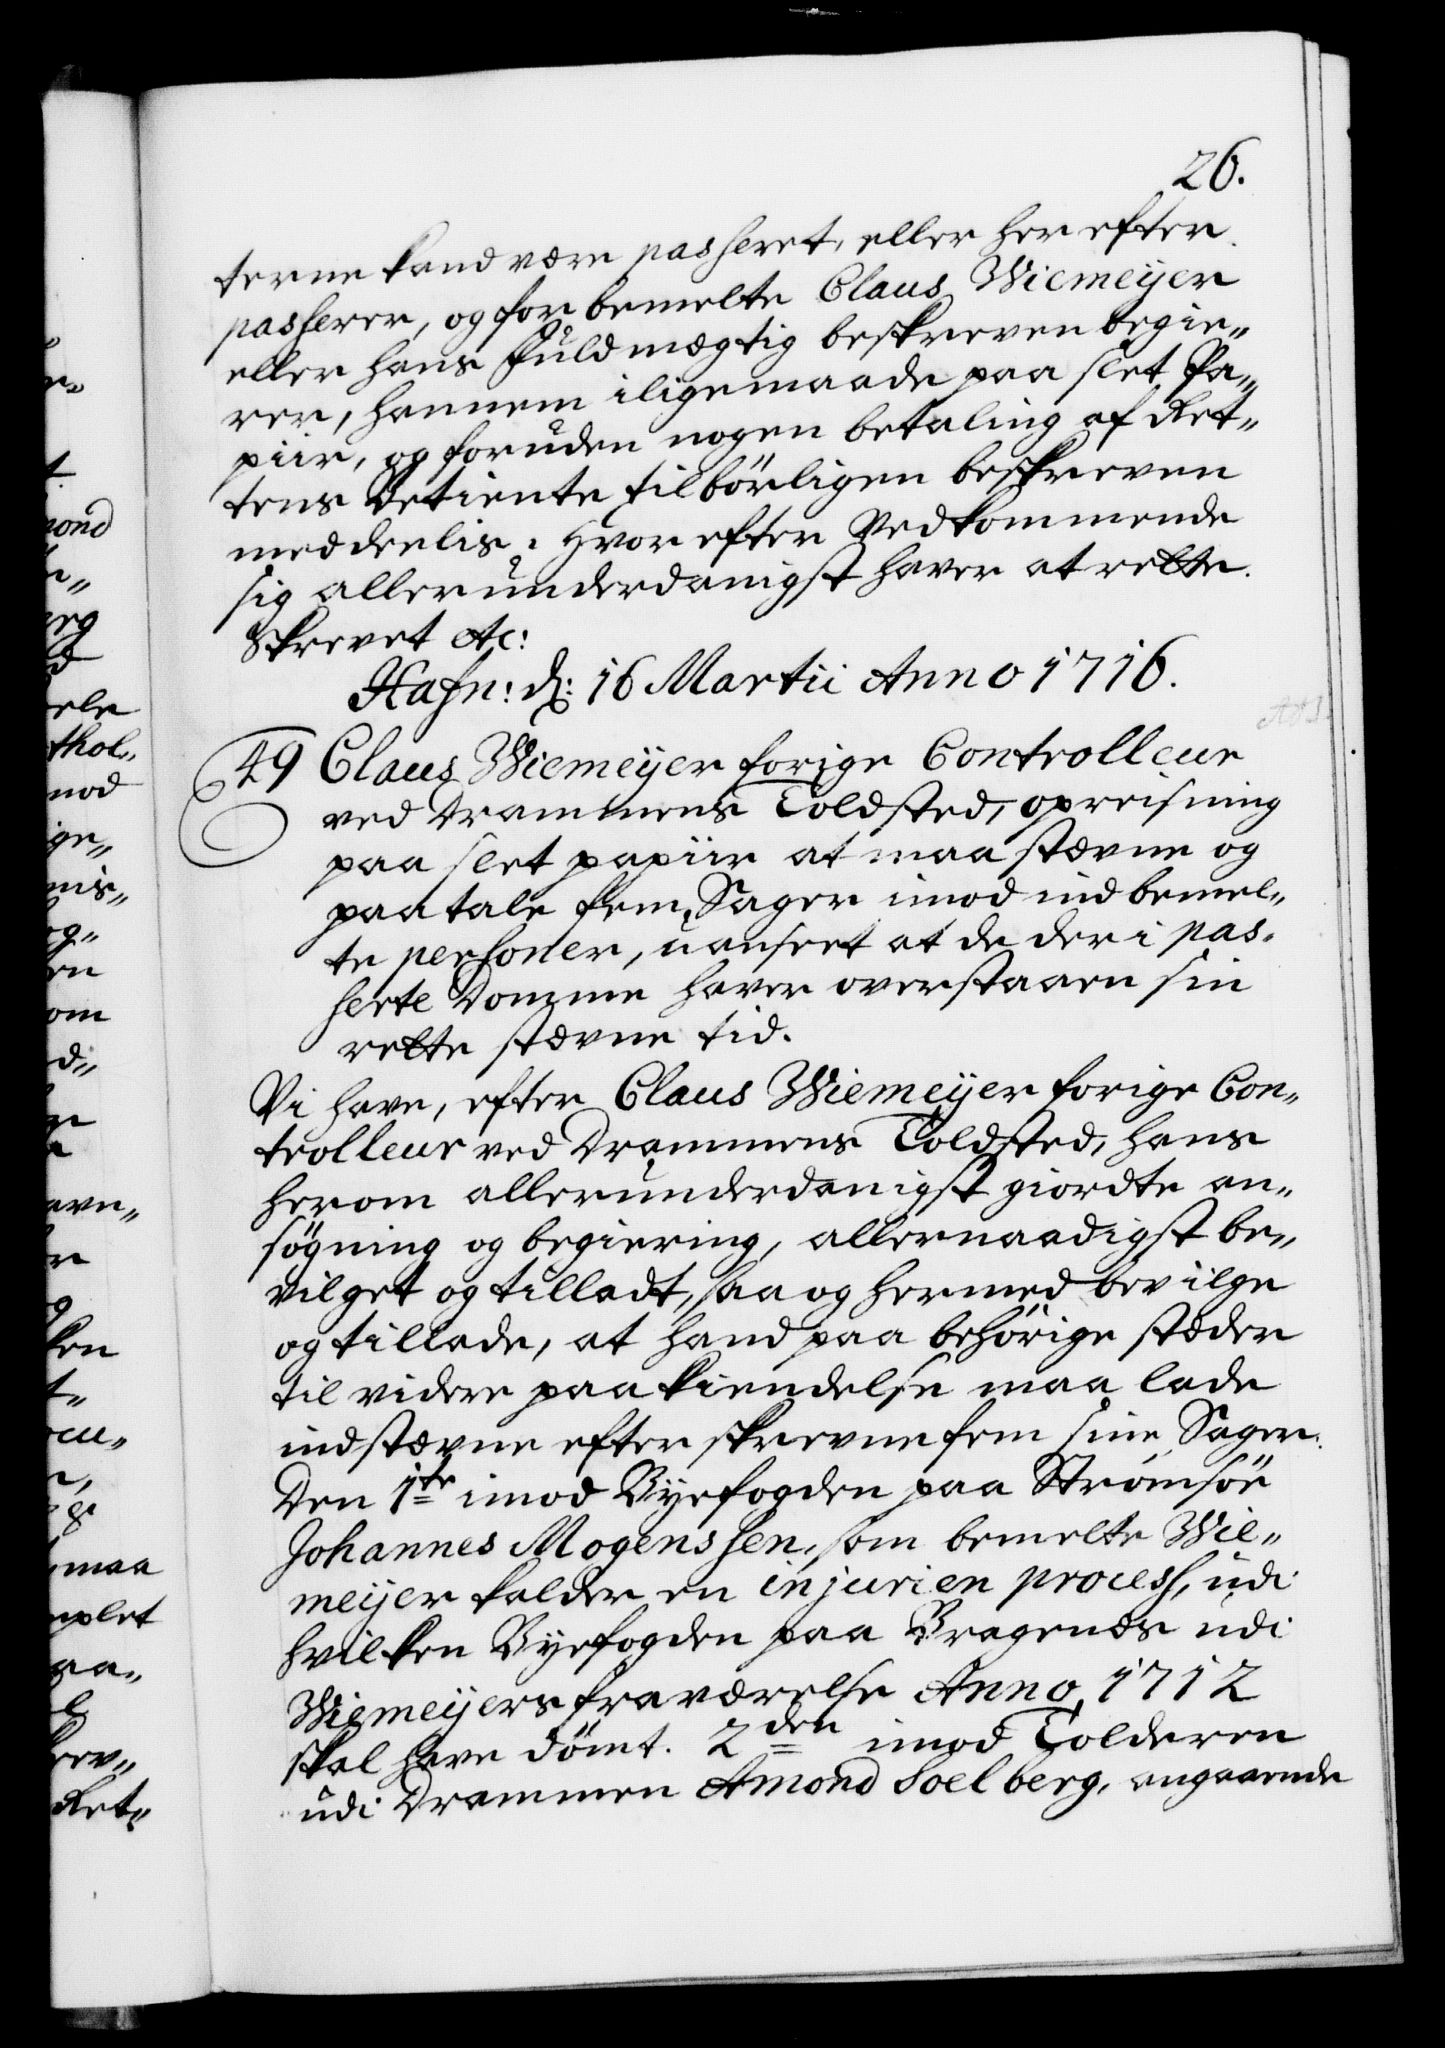 26.
terne kand være passeret, eller her efter
passerer, og for bemelte Claus Wiemeÿer
eller hans Fuldmægtig beskreven begie„
rer, hannem iligemaade paa slet Pa„
piir, og foruden nogen betaling af Ret„
tens Betiente tilbörligen beskreven
meddeelis. Hvorefter Vedkommende
sig allerunderdanigst haver at rette.
Skrevet etc:
Hafn: d: 16 Martii Anno 1716.
49 Claus Wiemeÿer forige Controlleur
ved Drammens Toldsted, opreisning
paa slet papiir at maa stævne og
paatale fem Sager imod indbemel„
te personer, uanseet at de der i pas„
serte Domme haver overstaaen sin
rette stævne tid.
Vi have, efter Claus Wiemeÿer forige Con„
trolleur ved Drammens Toldsted, hans
herom allerunderdanigst giordte an„
søgning og begiering, allernaadigst be„
vilget og tilladt, saa og hermed bevilge
og tillade, at hand paa behörige stæder
til videre paakiendelse maa lade
indstævne efterskrevne fem sine Sager.
Den 1te imod Byefogden paa Strømsöe
Johannes Mogenssen, som bemelte Wie„
meÿer kalder en injurien process, udi
hvilken Byefogden paa Bragenæs udi
Wiemeÿers fraværelse Anno 1712
skal have dömt. 2den imod Tolderen
udi Drammen Amond Soelberg, angaaende